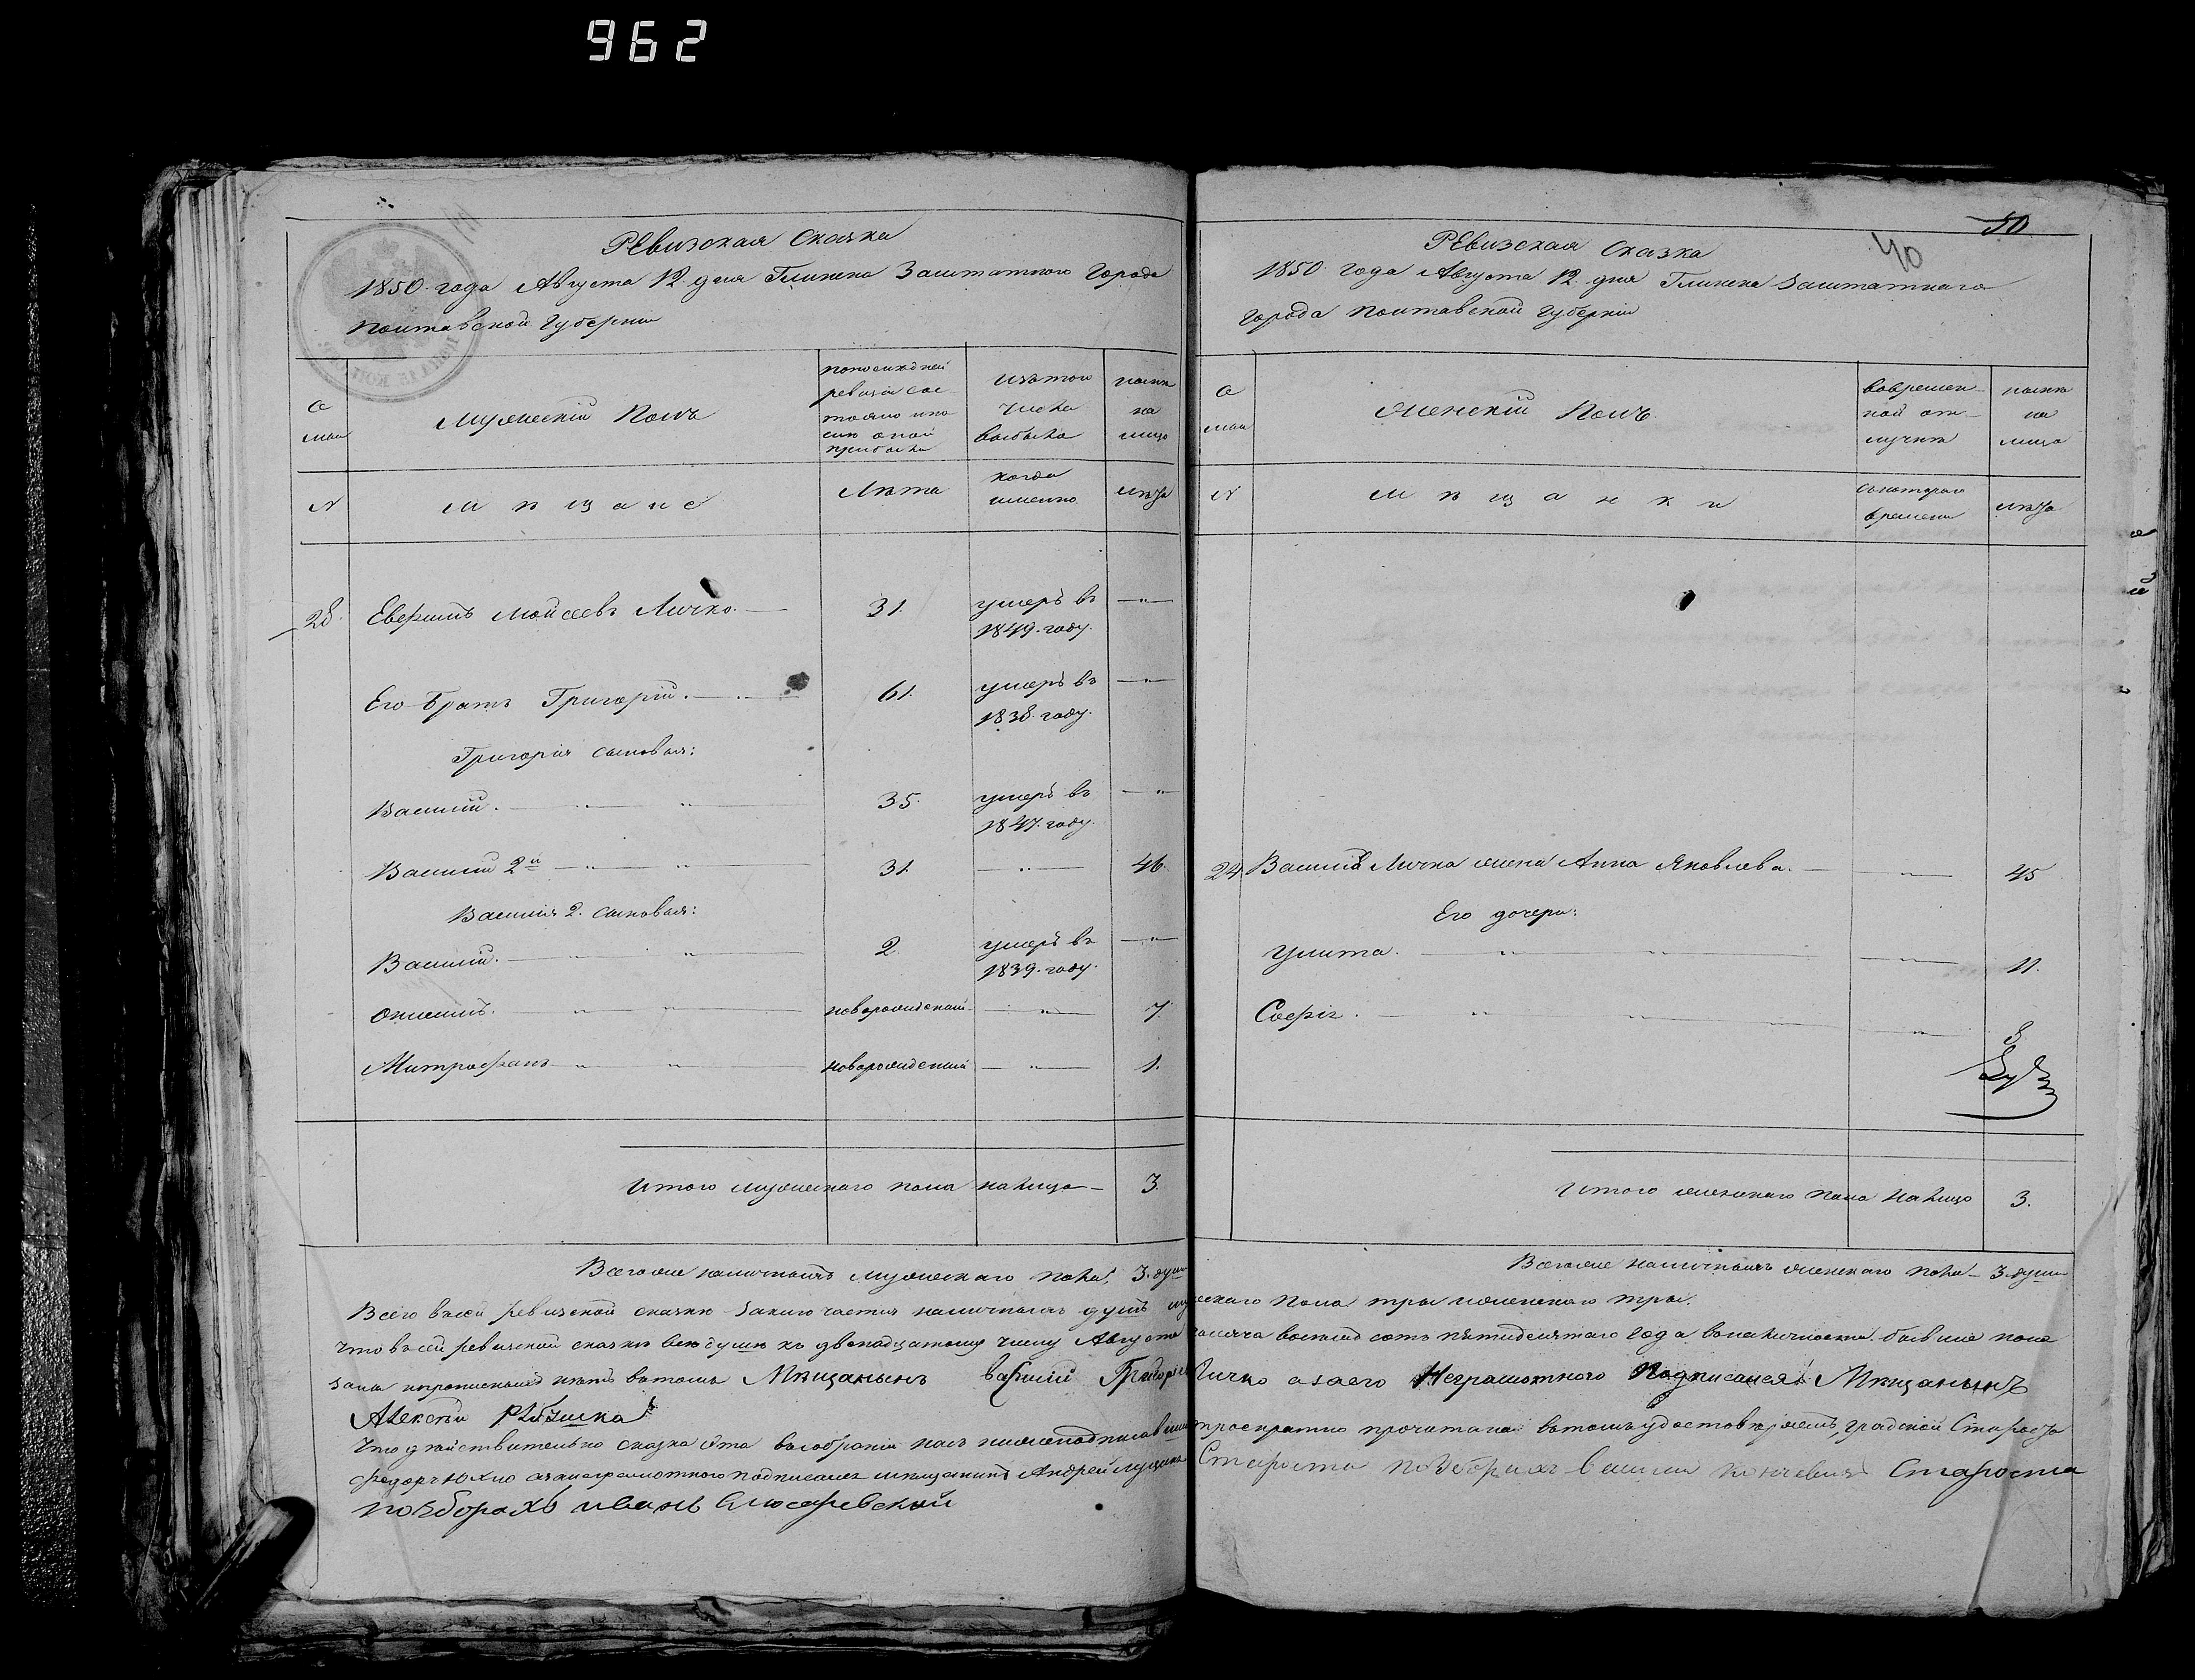 962
Ревизская Сказка
1850. года Августа 12. дня Глинска Заштатного Города
Полтавской Губернии
Семьи
Мужескій Полъ
по последней
ревизіи сос-
тояло и по-
сле оной
прибыло
изъ того
числа
выбыло
ныне
на
лицо
№
Мѣщане
Лета
когда
именно
лета
28. Евфимъ Мойсеевъ Личко. 31. умеръ въ
1849. году.
Его братъ Григорій. 61. умеръ въ
1838. году.
Григорія сыновья:
Василій. 35. умеръ въ
1847. году.
Василий 2й 31. 46.
Василія 2. сыновья:
Василий. 2. умеръ въ
1839. году.
Онисимъ. новорожденный 7.
Митрофанъ новорожденный 1.
Итого мужеского пола на лицо 3.
Всего же наличныхъ мужескаго пола, 3. душ
50
40
Ревизская Сказка
1850 года Августа 12. дня Глинска Заштатнаго
города Полтавской губерніи
Семьи
Женскій Полъ
во времен-
ной от-
лучке
ныне
на
лицо
№
Мѣщанки
съ котораго
времени
лета
24. Василія Личка жена Анна Яковлева. 45
Его дочери:
Улита. 11.
Софія. 8
Итого женскаго пола на лицо 3.
Всего же наличныхъ женскаго пола 3. души
Всего въ сей ревизской сказке заключается наличныхъ душъ мужескаго пола три и женскаго три.
Что въ сей ревизской сказке все души къ двенадцатому числу Августа тысяча восемь сотъ пятидесятаго года в наличности бывшие пока
заны и прописныхъ нетъ въ томъ Мѣщанынъ Василий Григорьев Личко а за его Неграмотного Подписался Мѣщанынъ
Алексей
Что действительно сказка эта въ собрании нас нижеподписавших троекратно прочитана в томъ удостоверяемъ, градской Староста
Федоръ Юхно а за неграмотного подписался мещанинъ Андрей Староста по зборахъ Василий Староста
по зборахъ иванъ Слюсаревский